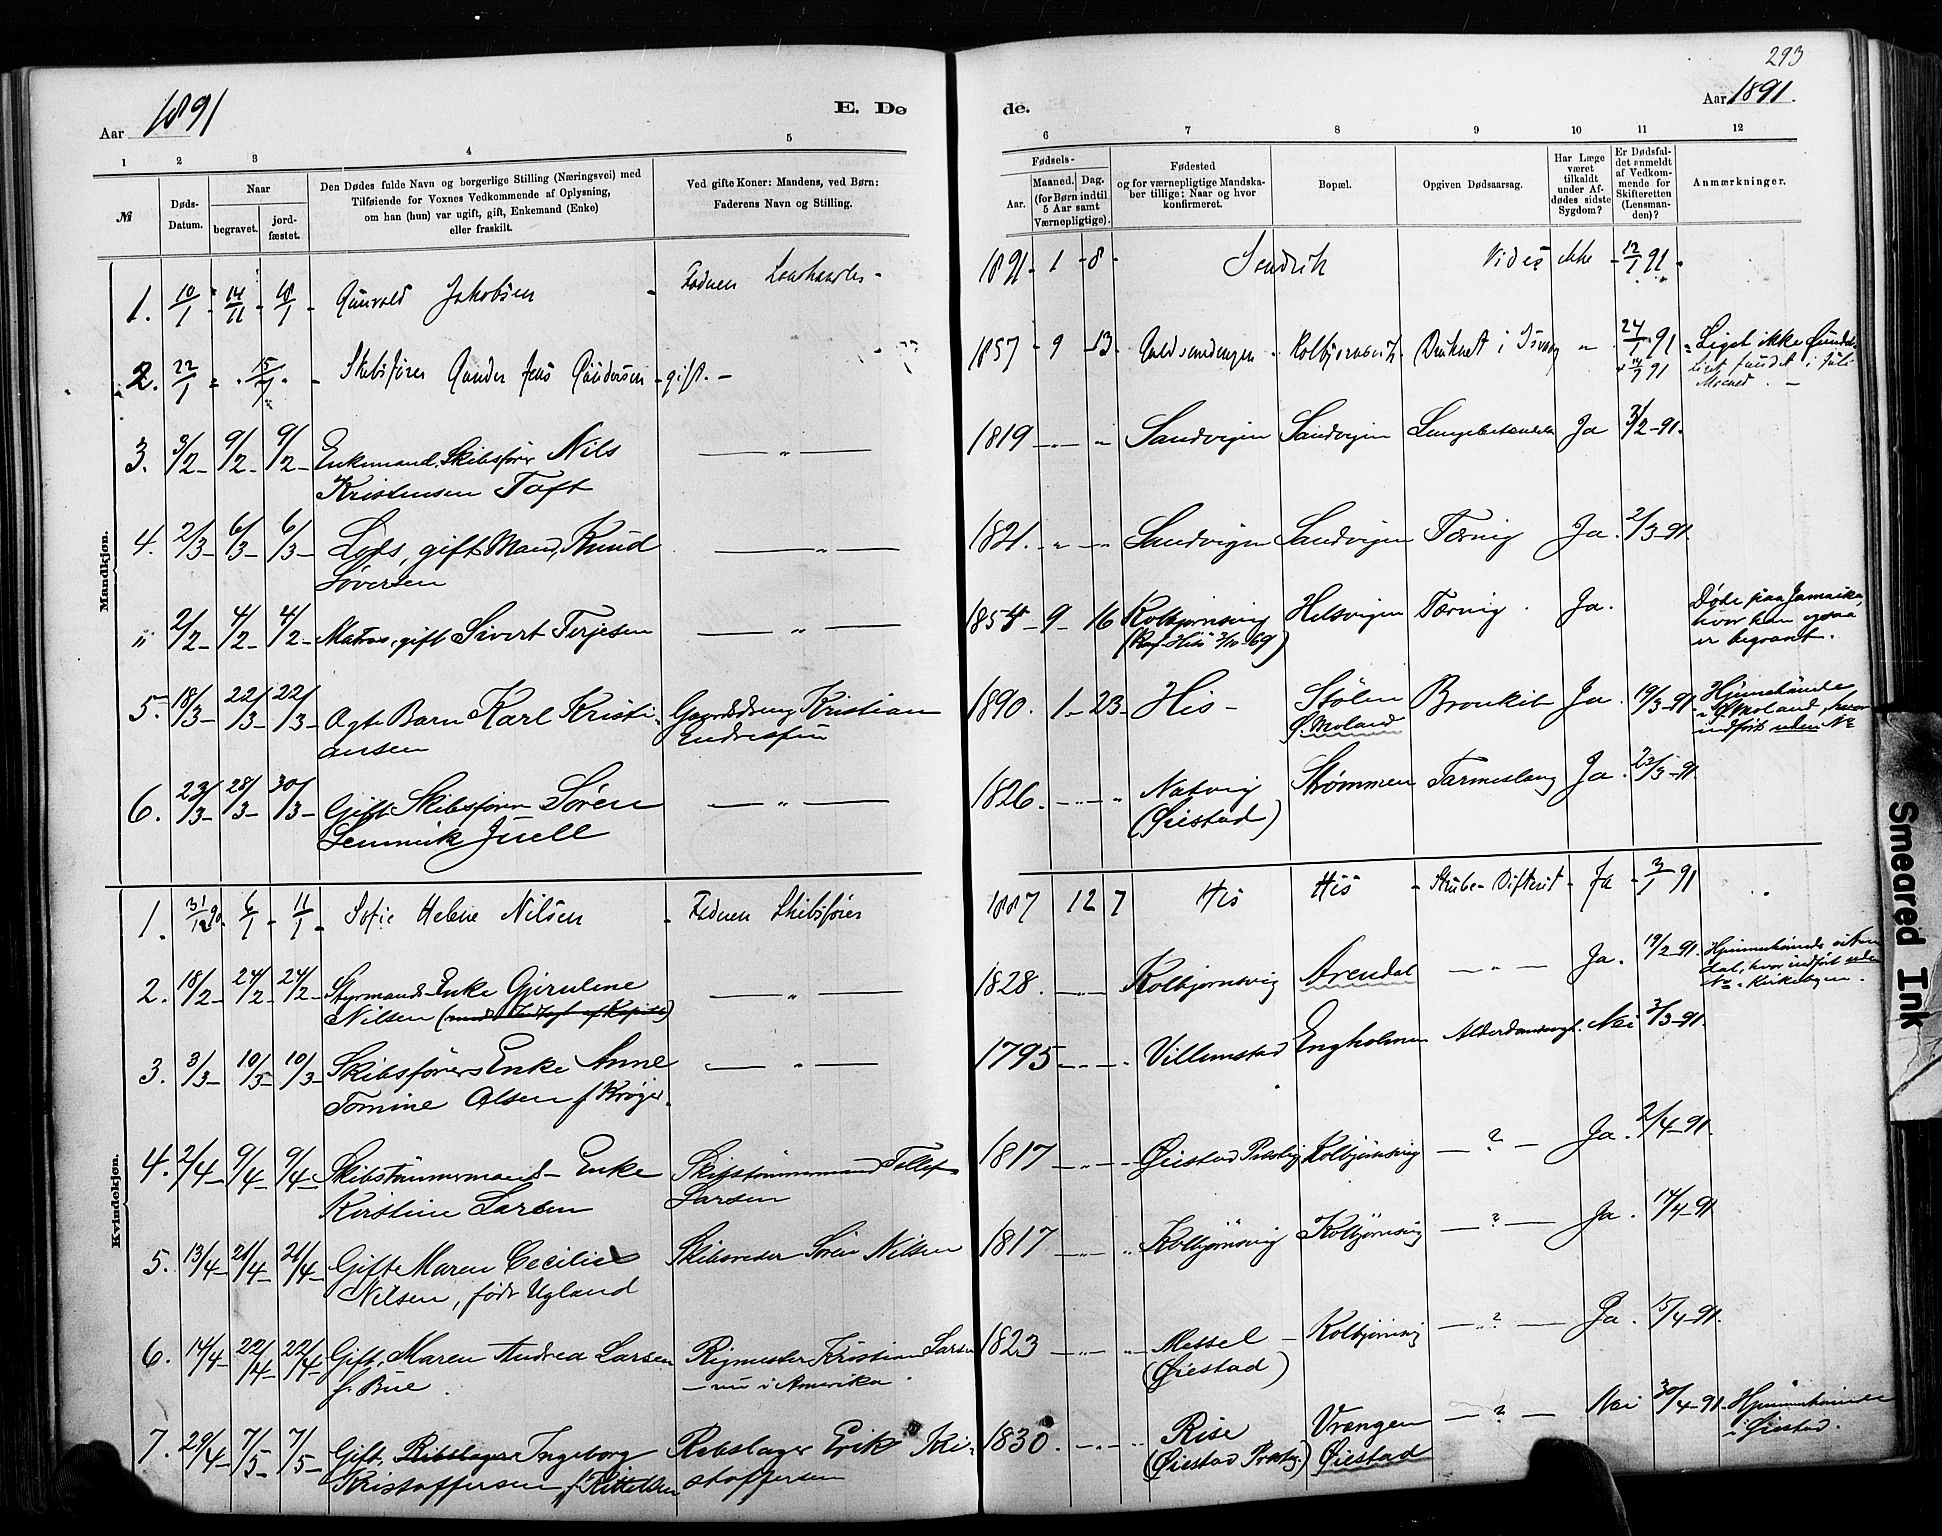 293
Aar 1891
E. Dø
de.
Aar 1891.
1 2 3 4 5 6 7 8 9 10 11 12
№
Døds-Datum.
Naar
begravet.
jord-fæstet.
Den Dødes fulde Navn og borgerlige Stilling (Næringsvei) med
Tilføiende for Voxnes Vedkommende af Oplysning,
om han (hun) var ugift, gift, Enkemand (Enke)
eller fraskilt.
Ved gifte Koner: Mandens, ved Børn:
Faderens Navn og Stilling.
Fødsels-
Aar.
Maaned. Dag.
(for Børn indtil
5 Aar samt
Værnepligtige).
Fødested
og for værnepligtige Mandska-
ber tillige; Naar og hvor
konfirmeret.
Bopæl.
Opgiven Dødsaarsag.
Har Læge
været
tilkaldt
under Af-
dødes sidste
Sygdom?
Er Dødsfal-
det anmeldt
af Vedkom-
mende for
Skifteretten
(Lensman-
den)?
Anmærkninger.
Mandkjøn.
1. 10/1 - 14/11 - 18/1 - Gunvald Jakobsen - 1891 - 1 - 8 - ikke - 12/1 91 -
2. 22/1 - Skibsfører Gunder Jens Gundersen - gift. - 1857 - 9 - 13 - Kolbjørnsvik Druknet i 24/1 91 Liget ikke
fundet i Juli
Maaned. -
3. 3/2 - 9/2 - 9/2 - Enkemand, Skibsfører Nils 1819 Sandvigen Sandvigen Lungebetændelse Ja 3/2-91.
Kristensen Toft
4. 2/3 - 6/3 - 6/3 - Lods, gift Mand, Knud 1821. Sandvigen Sandvigen Tæring Ja. 2/3-91.
Søversen
" 2/2 - 4/2 - 4/2 - Matros, gift Sivert Terjesen 1854 - 9 - 16 Kolbjørnsvig Helsvigen Tæring. Ja. Døde paa Jamaika,
(Konf. Hisø 3/10-69) hvor han ogsaa
er begravet.
5. 18/3 - 22/3 - 22/3 - Ægte Barn Karl Kristi- Gaardsdreng Kristian 1890. 1 - 23 - His - Stølen Bronkit Ja. 19/3-91 Hjemmehørende
ansen Ø. Moland i Ø. Moland, hvor
indført uden No
6. 23/3 - 28/3 - 30/3 - Gift Skibsfører Søren 1826. Natvig Strømmen Tarmeslyng Ja. 23/3-91
Juell (Øiestad)
Kvindekjøn.
1. 31/12 90 - 6/1 - 11/1 - Sofie Helene Nilsen - Faderen Skibsfører 1887 12 7 His His - Strube-Difterit - Ja - 3/1 91
2. 18/2 - 24/2 - 24/2 - Styrmands-Enke Gjeruline 1828. Kolbjørnsvig Arendal Ja. 19/2-91. Hjemmehørende i Aren
Nilsen dal, hvor indført uden
No i Kirkebogen.
3. 3/3 - 10/3 - 10/3 - Skibsførers Enke Anne 1795 Villumstad Engholmen Nei 3/3-91.
Tomine Olsen f. Krøger.
4. 2/4 - 9/4 - 9/4 - Skibstømmermands-Enke Skibstømmermand Tellef 1817 Øiestad Præstgj. Kolbjørnsvig - ? - Ja. 2/4-91.
Kirstine Larsen Larsen
5. 13/4 - 21/4 - 21/4 - Gift Maren Cecilie Skibsreder Søren Nilsen 1817 Kolbjørnsvig Kolbjørnsvig - ? - Ja. 14/4-91
Nilsen, født Ugland
6. 14/4 - 22/4 - 22/4 - Gift, Maren Andrea Larsen Rigmester Kristian Larsen 1823 Messel Kolbjørnsvig - ? - Ja. 15/4-91.
f. Bue. - nu i Amerika. (Øiestad)
7. 29/4 - 7/5 - 7/5 - Gift, Rebslager Ingeborg Rebslager Erik Kri- 1830. Rise Vrængen - ? - Nei 30/4-91 Hjemmehørende
Kristoffersen, stoffersen (Øiestad Præstgj.) Øiestad i Øiestad.
Smeared Ink